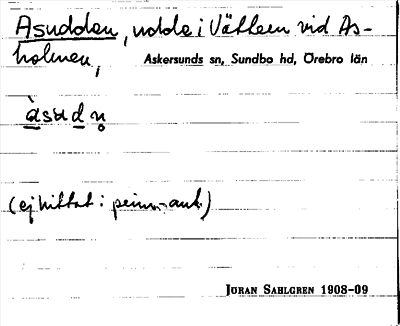 Asudden, udde i Vättern vid As-
holmen,
Askersunds sn, Sundbo hd, Örebro län
àsudn̥
(ej hittat i
JÖRAN SAHLGREN 1908-09